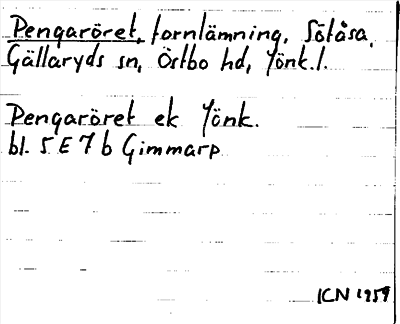 Pengaröret, fornlämning, Sötåsa,
Gällaryds sn, Östbo hd, Jönk.l.
Pengaröret ek Jönk.
bl. 5 E 7 b Gimmarp
ICN 1959